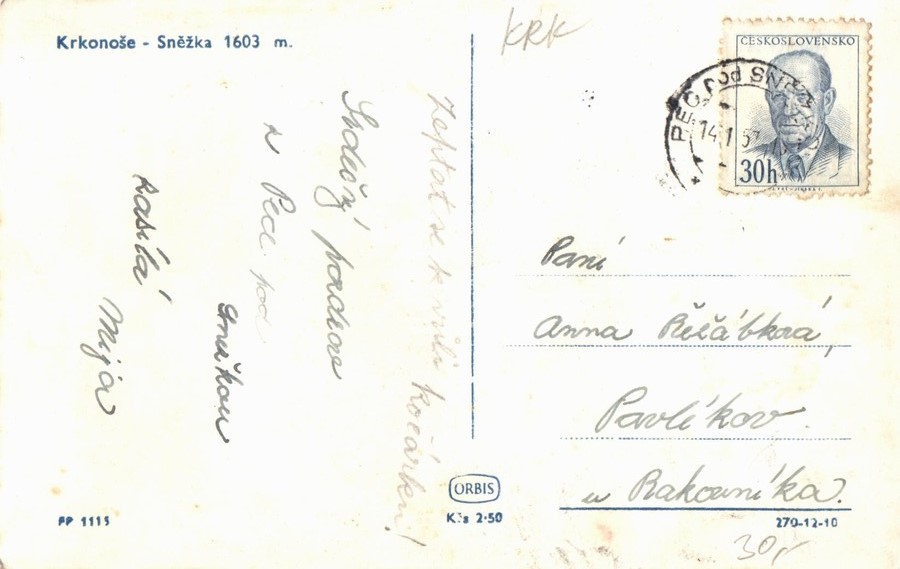 Krkonoše - Sněžka 1603 m.
KRK
ČESKOSLOVENSKO
30h
PEC pod SNĚŽKOU
14.1.57
Srdečný pozdrav
z Pece pod
Sněžkou
zasílá
Mija
Zeptat se kvůli kočárku!
Paní
Anna Řeřábková,
Pavlíkov
u Rakovníka.
ORBIS
Kčs 2·50
PP 1115
270-12-10
30,-